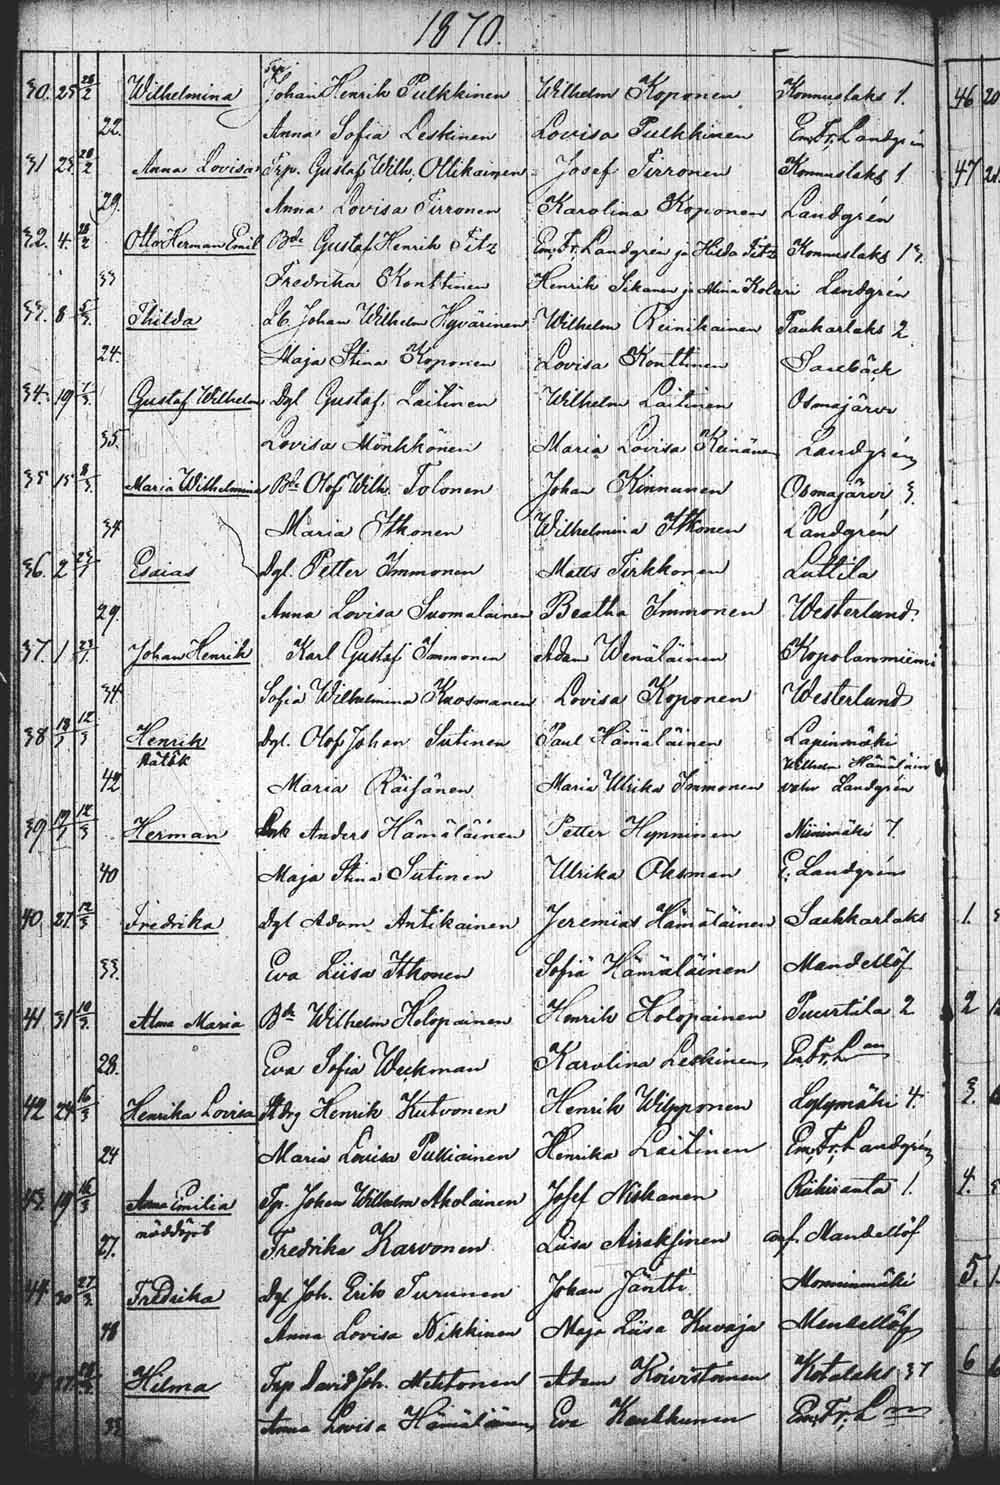 1870.
30. 25 28/2 Wilhelmina Trp. Johan Henrik Pulkkinen Wilhelm Koponen Konnuslaks 1. 46 20
22. Anna Sofia Leskinen Lovisa Pulkkinen Em. Fr. Landgrén
31 23 28/2 Anna Lovisa Trp. Gustaf Wilh. Ollikainen Josef Tirronen Konnuslaks 1 47
29. Anna Lovisa Tirronen Karolina Koponen Landgrén
32. 4. 28/2 Otto Herman Emil Bde Gustaf Henrik Fitz Em. Fr. Landgrén ja Hilda Fitz Konnuslaks 13.
33 Fredrika Konttinen Henrik Sikanen ja Mina Kolari Landgrén
33. 8 5/3 Thilda Lb. Johan Wilhelm Hyvärinen Wilhelm Reinikainen Paukarlaks 2.
24. Maja Stina Koponen Lovisa Konttinen Saxbäck
34. 19 1/3 Gustaf Wilhelm Dgl Gustaf Laitinen Wilhelm Laitinen Osmajärvi
35. Lovisa Mönkkönen Maria Lovisa Keinänen Landgrén
35 15 8/3 Maria Wilhelmina Bde Olof Wilh. Tolonen Johan Kinnunen Osmajärvi 3.
34 Maria Itkonen Wilhelmina Itkonen Landgrén
36. 2 Esaias Dgl. Petter Immonen Matts Tirkkonen Luttila
29. Anna Lovisa Suomalainen Beatha Immonen Westerlund.
37. 1 Johan Henrik Karl Gustaf Immonen Adam Wenäläinen Kopolanniemi
34 Sofia Wilhelmina Kuosmanen Lovisa Koponen Westerlund
38 12/3 Henrik Dgl. Olof Johan Sutinen Paul Hämäläinen Lapinmäki
42 Maria Räisänen Maria Ulrika Immonen Wilhelm Hämäläin Landgrén
39 12/3 Herman Anders Hämäläinen Petter Hynninen Niinimäki 7.
40 Maja Stina Sutinen Ulrika Oksman E. Landgrén
40 27. 12/3 Fredrika Dgl Adam Antikainen Jeremias Hämäläinen Saahkarlaks 1.
33. Eva Liisa Itkonen Sofia Hämäläinen Mandellöf
41. 31 10/3 Alma Maria Bde Wilhelm Holopainen Henrik Holopainen Puurtila 2 2
28. Eva Sofia Weckman Karolina Leskinen Em. Fr. L
42 24 16/3 Henrika Lovisa Henrik Kutvonen Henrik Wilpponen Leplymäki 4. 3.
24 Maria Lovisa Pulliainen Henrika Laitinen Em. Fr. Landgrén
43. 19 16/3 Anna Emilia Tp. Johan Wilhelm Akolainen Josef Niskanen Riihiranta 1. 4.
27. Fredrika Karvonen Liisa Airaksinen Mandellöf
44. 30 27/3 Fredrika Dgl Joh. Erik Turunen Johan Jäntti Monninmäki 5.
48 Anna Lovisa Nikkinen Maja Liisa Kuvaja Mandellöf
Hilma Trp David Joh. Miettonen Adam Koivistoinen Kotalaks 37 6
33 Anna Lovisa Hämäläinen Eva Kaukkunen Em. Fr. L